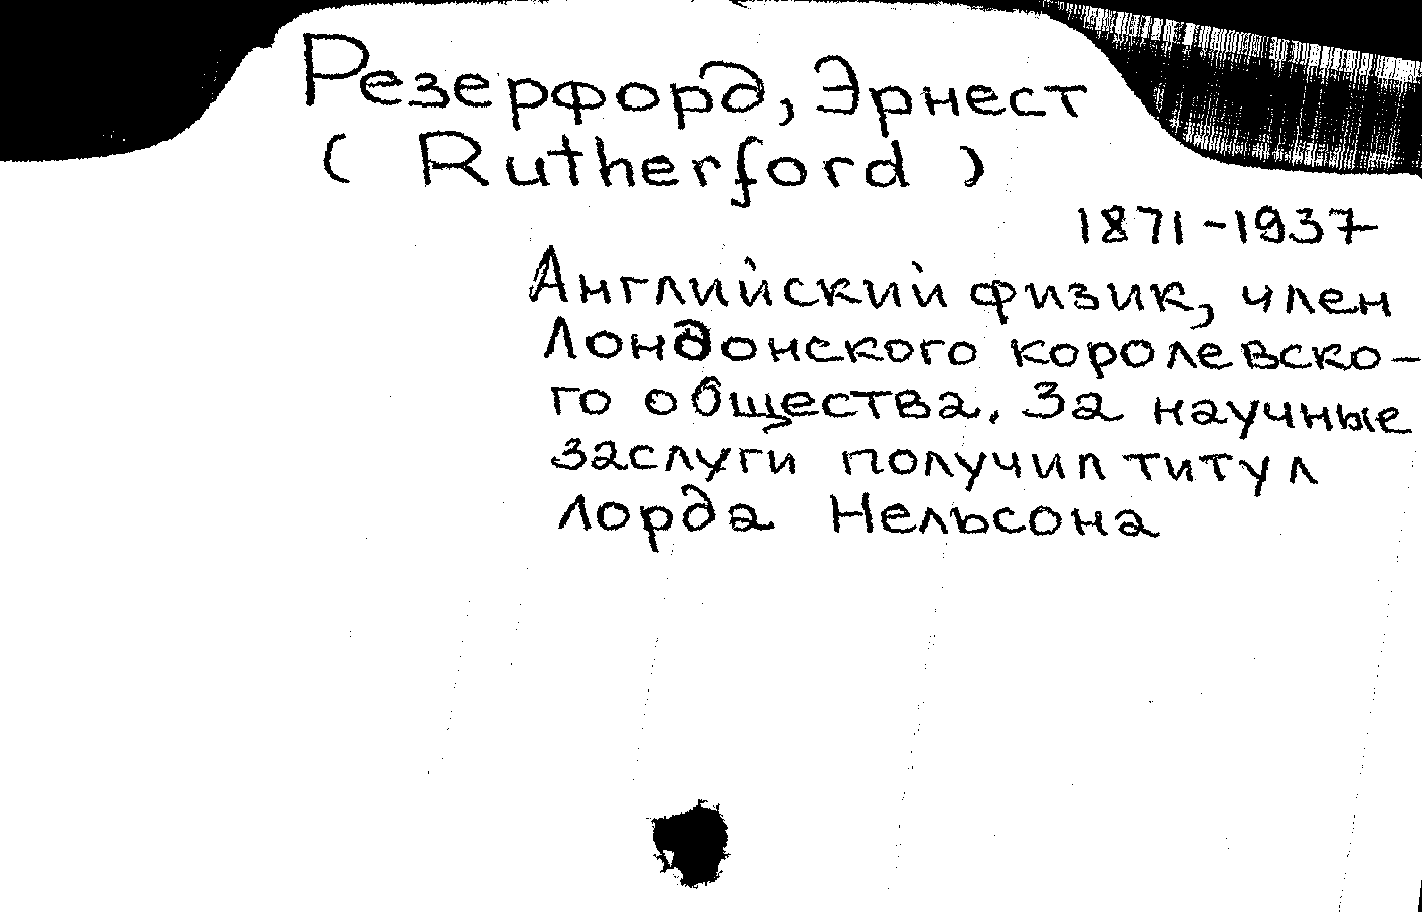 Резерфорд, Эрнест
( Rutherford )
1871-1937
Английский физик, член
Лондонского королевско-
го общества. За научные
заслуги получил титул
лорда Нельсона